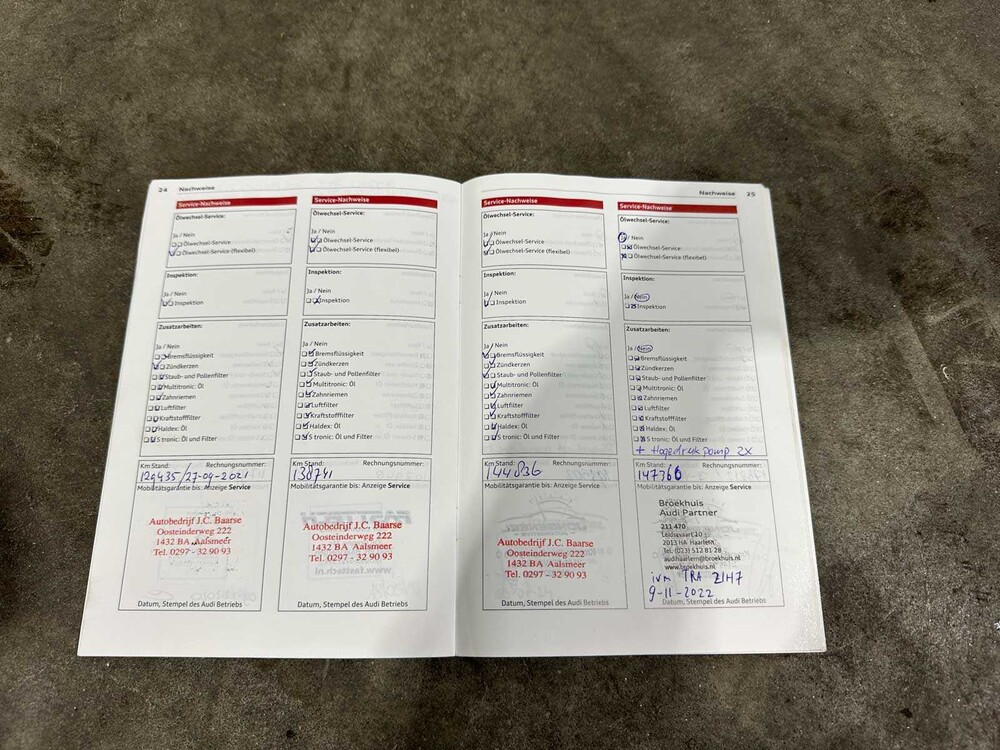 24 Nachweise
Service-Nachweise
Ölwechsel-Service:
Ja / Nein
Ölwechsel-Service
Ölwechsel-Service (flexibel)
Inspektion:
Ja / Nein
Inspektion
Zusatzarbeiten:
Ja / Nein
Bremsflüssigkeit
Zündkerzen
Staub- und Pollenfilter
Multitronic: Öl
Zahnriemen
Luftfilter
Kraftstofffilter
Haldex: Öl
S tronic: Öl und Filter
Km Stand: Rechnungsnummer:
129435/27-09-2021
Mobilitätsgarantie bis: Anzeige Service
Autobedrijf J.C. Baarse
Oosteinderweg 222
1432 BA Aalsmeer
Tel. 0297 - 32 90 93
Datum, Stempel des Audi Betriebs
Service-Nachweise
Ölwechsel-Service:
Ja / Nein
Ölwechsel-Service
Ölwechsel-Service (flexibel)
Inspektion:
Ja / Nein
Inspektion
Zusatzarbeiten:
Ja / Nein
Bremsflüssigkeit
Zündkerzen
Staub- und Pollenfilter
Multitronic: Öl
Zahnriemen
Luftfilter
Kraftstofffilter
Haldex: Öl
S tronic: Öl und Filter
Km Stand: Rechnungsnummer:
138741
Mobilitätsgarantie bis: Anzeige Service
Autobedrijf J.C. Baarse
Oosteinderweg 222
1432 BA Aalsmeer
Tel. 0297 - 32 90 93
Datum, Stempel des Audi Betriebs
Nachweise 25
Service-Nachweise
Ölwechsel-Service:
Ja / Nein
Ölwechsel-Service
Ölwechsel-Service (flexibel)
Inspektion:
Ja / Nein
Inspektion
Zusatzarbeiten:
Ja / Nein
Bremsflüssigkeit
Zündkerzen
Staub- und Pollenfilter
Multitronic: Öl
Zahnriemen
Luftfilter
Kraftstofffilter
Haldex: Öl
S tronic: Öl und Filter
Km Stand: Rechnungsnummer:
144836
Mobilitätsgarantie bis: Anzeige Service
Autobedrijf J.C. Baarse
Oosteinderweg 222
1432 BA Aalsmeer
Tel. 0297 - 32 90 93
Datum, Stempel des Audi Betriebs
Service-Nachweise
Ölwechsel-Service:
Ja / Nein
Ölwechsel-Service
Ölwechsel-Service (flexibel)
Inspektion:
Ja / Nein
Inspektion
Zusatzarbeiten:
Ja / Nein
Bremsflüssigkeit
Zündkerzen
Staub- und Pollenfilter
Multitronic: Öl
Zahnriemen
Luftfilter
Kraftstofffilter
Haldex: Öl
S tronic: Öl und Filter
+ Hogedruk pomp 2X
Km Stand: Rechnungsnummer:
147366
Mobilitätsgarantie bis: Anzeige Service
Broekhuis
Audi Partner
211 470
Leidsevaart
2013 HA Haarlem
Tel. (023) 512 81 28
audihaarlem@broekhuis.nl
www.broekhuis.nl
ivm TRA 21H7
9-11-2022
Datum, Stempel des Audi Betriebs